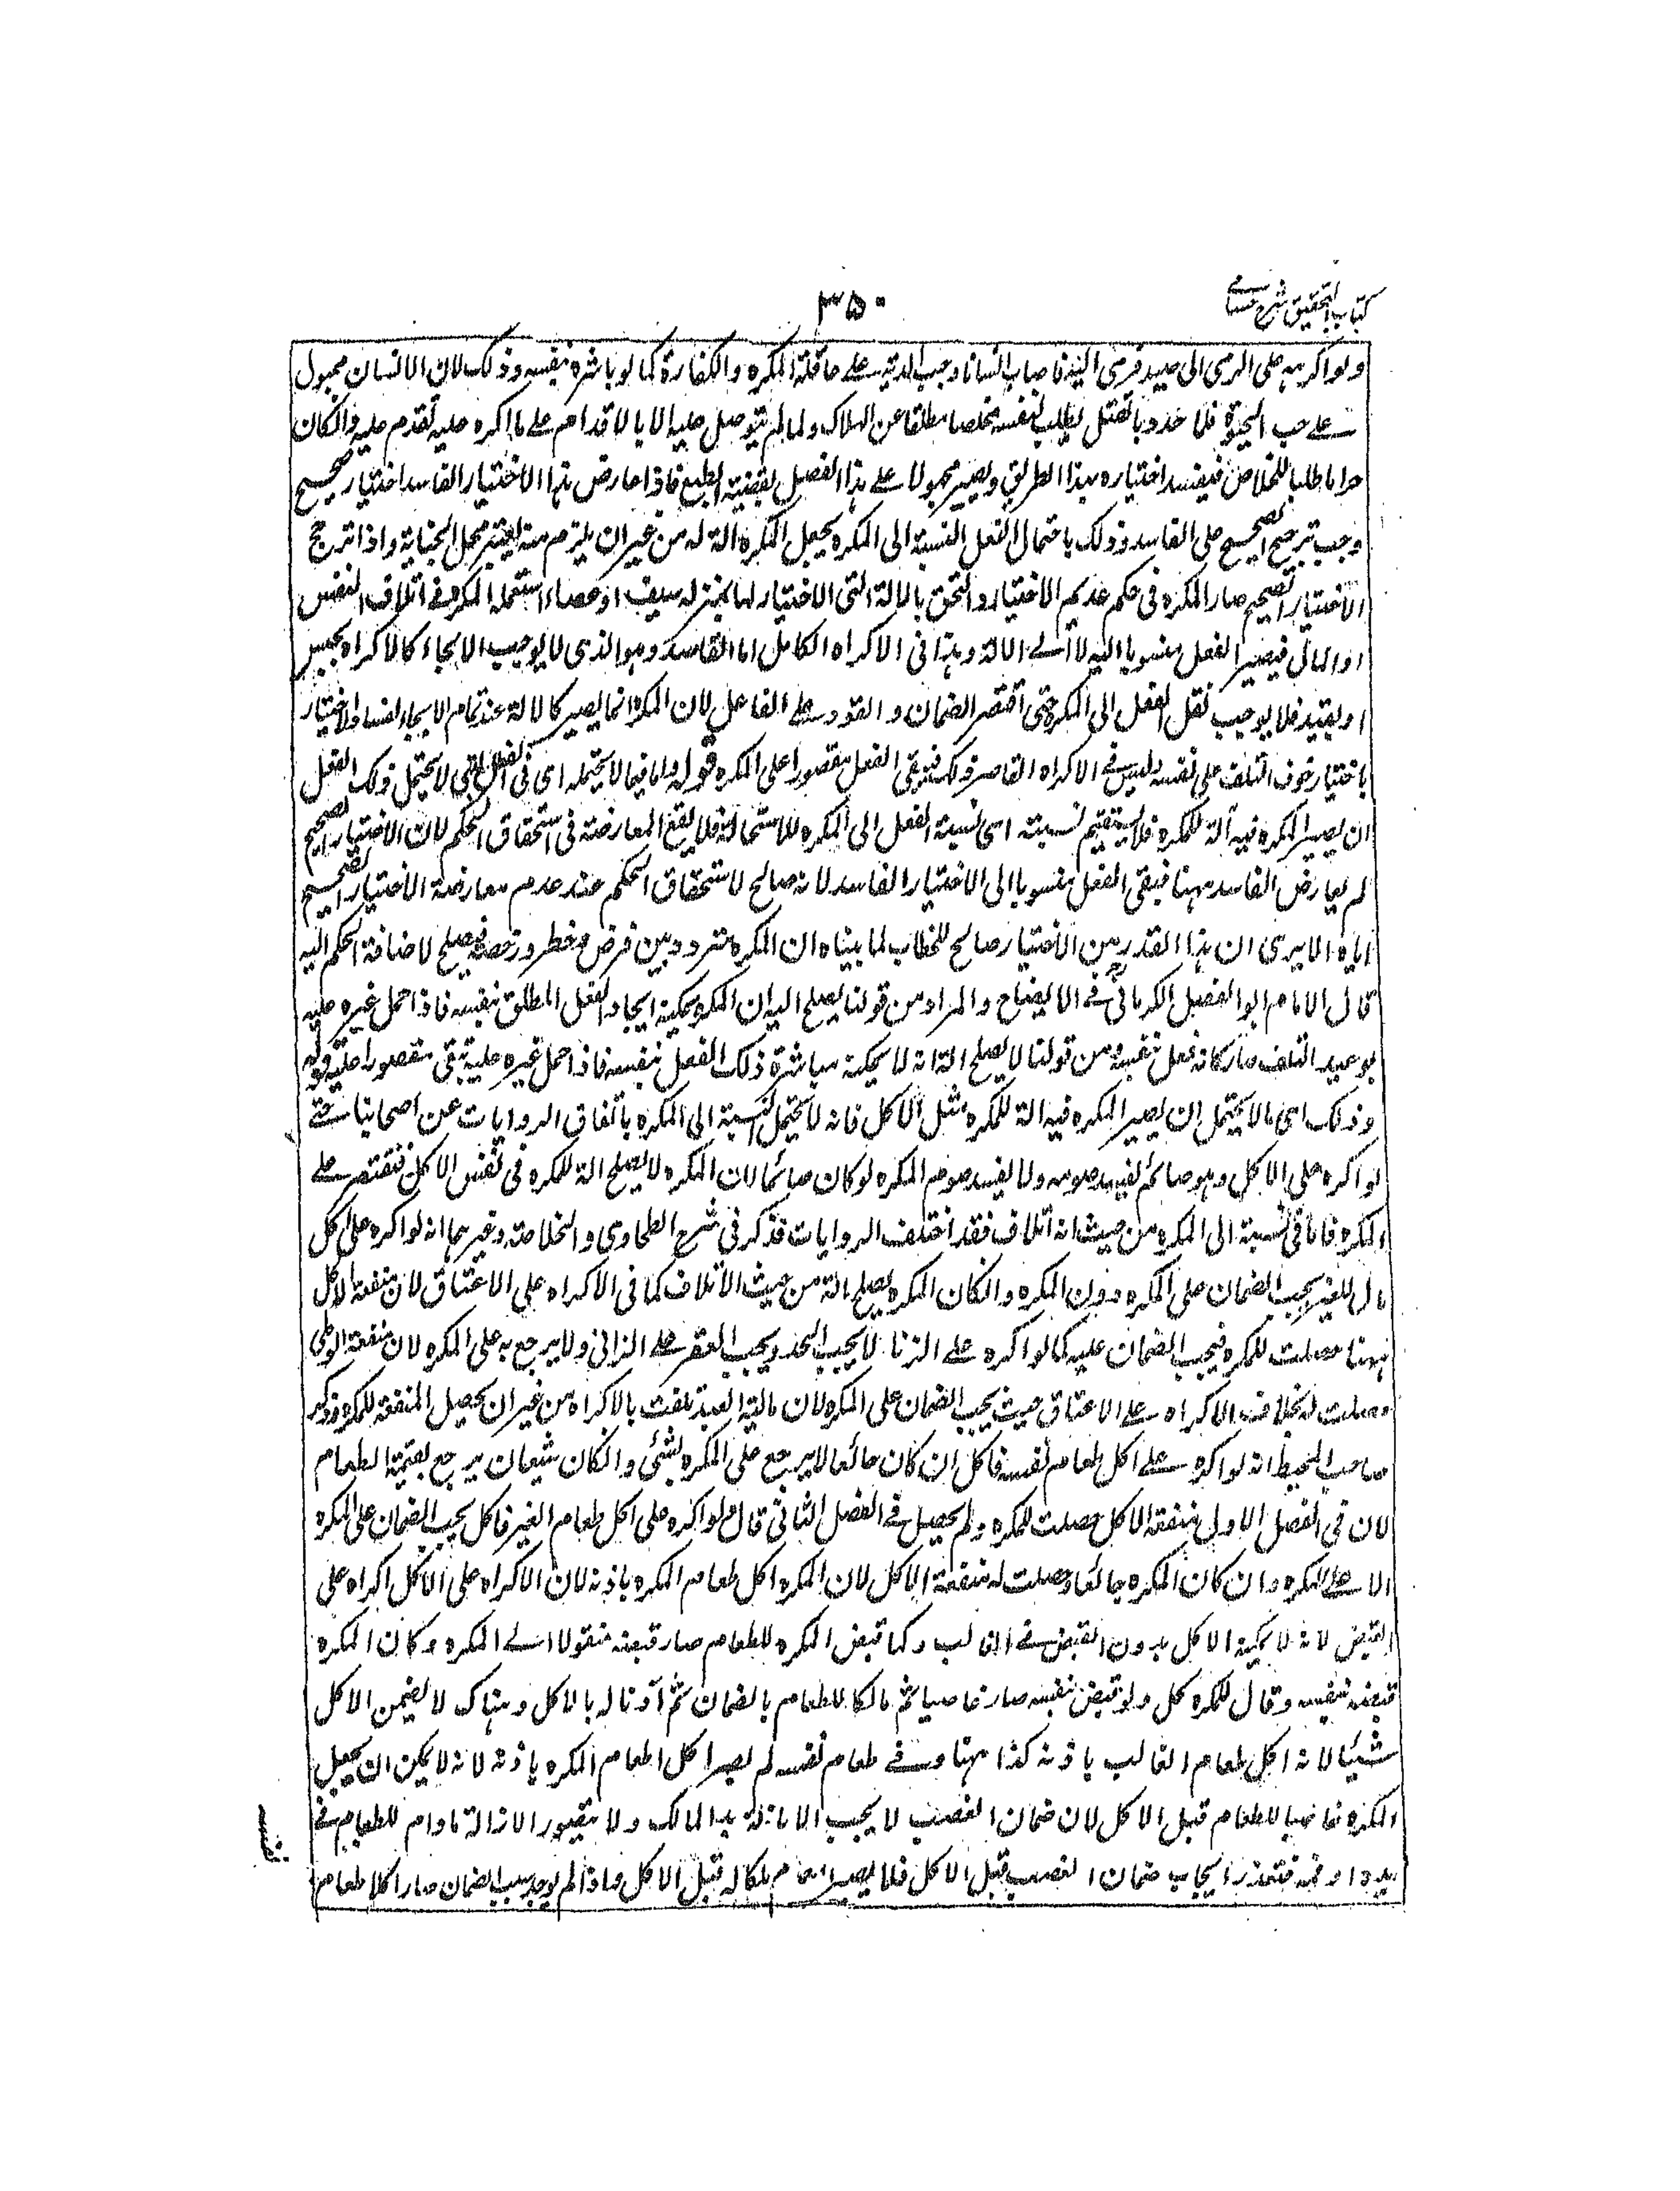 كتاب التحقيق شرح حسامى
٣٥٠
ولو اكرهه على الرمى الى صيد فرمى اليه فاصاب انسانا وجب الدية على عاقلة المكره والكفارة كما لو باشره بنفسه وذلك لان الانسان مجبول
على حب الحيوة فلما هدد بالقتل يطلب لنفسه مخلصا مطلقا عن الهلاك ولما لم يتوصل عليه الا بالاقدام على ما اكره عليه تقدم عليه وان كان
حراما طلبا للخلاص فيفسد اختياره بهذا الطريق ويصير مجبولا على هذا الفصل بقضية الطبع فاذا عارض هذا الاختيار الفاسد اختيار صحيح
وجب ترجيح الصحيح على الفاسد وذلك باحتمال الفعل النسبة الى المكره يجعل المكره الة له من غير ان يلزم منه تغير محل الجناية واذا ترجح
الاختيار الصحيح صار المكره فى حكم عديم الاختيار والتحق بالالة التى لا اختيار لها بمنزلة سيف او عصاء استعمله المكره فى اتلاف النفس
او المال فيصير الفعل منسوبا اليه لا الى الالة وهذا فى الاكراه الكامل اما القاصر وهو الذى لا يوجب الالجاء كالاكراه بحبس
او بقيد فلا يوجب نقل الفعل الى المكره حتى اقتصر الضمان والقود على الفاعل لان المكره انما يصير كالالة عند تمام الالجاء لفساد الاختيار
باختيار خوف التلف على نفسه وليس فى الاكراه القاصر ذلك فيبقى الفعل مقصورا على المكره قوله واما فيما لا يحتمله اى فى الفعل الذى لا يحتمل ذلك الفعل
ان يصير المكره فيه آلة للمكره فلا يستقيم نسبته اى نسبة الفعل الى المكره للاستحالة فلا يقع المعارضة فى استحقاق الحكم لان الاختيار الصحيح
لم يعارض الفاسد ههنا فبقى الفعل منسوبا الى الاختيار الفاسد لانه صالح لاستحقاق الحكم عند عدم معارضة الاختيار الصحيح
اياه الا يرى ان هذا القدر من الاختيار صالح للخطاب لما بيناه ان المكره متردد بين فرض وخطر ورخصة فيصلح لاضافة الحكم اليه
قال الامام ابو الفضل الكرمانى فى الايضاح والمراد من قولنا يصلح الة ان المكره يمكنه ايجاد الفعل المطلق بنفسه فاذا حمل غيره عليه
بوعيد التلف صار كانه فعل بنفسه ومن قولنا لا يصلح الة انه لا يمكنه مباشرة ذلك الفعل بنفسه فاذا حمل غيره عليه بقى مقصورا عليه قوله
وذلك اى ما لا يحتمل ان يصير المكره فيه الة للمكره مثل الاكل فانه لا يحتمل النسبة الى المكره باتفاق الروايات عن اصحابنا حتى
لو اكره على الاكل وهو صائم يفسد صومه ولا يفسد صوم المكره لو كان صائما لان المكره لا يصلح الة للمكره فى نفس الاكل فتقتصر على
المكره فاما فى نسبة الى المكره من حيث انه اتلاف فقد اختلف الروايات فذكر فى شرح الطحاوى والخلاصة وغيرهما انه لو اكره على اكل
مال للغير يجب الضمان على المكره دون المكره وان كان المكره يصلح الة من حيث الاتلاف كما فى الاكراه على الاعتاق لان منفعة الاكل
ههنا حصلت للمكره فيجب الضمان عليه كما لو اكره على الزنا لا يجب الحد ويجب العقر على الزانى ولا يرجع به على المكره لان منفعة الوطى
حصلت له بخلاف الاكراه على الاعتاق حيث يجب الضمان على المكره لان مالية العبد تلفت بالاكراه من غير ان يحصل المنفعة للمكره وذكر
صاحب المحيط انه لو اكره على اكل طعام نفسه فاكل ان كان جائعا لا يرجع على المكره بشئ وان كان شبعان يرجع بقيمة الطعام
لان فى الفصل الاول منفعة الاكل حصلت للمكره ولم يحصل فى الفصل الثانى قال ولو اكره على اكل طعام الغير فاكل يجب الضمان على المكره
لا على المكره وان كان المكره جائعا وحصلت له منفعة الاكل لان المكره اكل طعام المكره باذنه لان الاكراه على الاكل اكراه على
القبض لانه لا يمكنه الاكل بدون القبض فى الغالب وكما قبض المكره للطعام صار قبضه منقولا الى المكره وكان المكره
قبضه بنفسه وقال للمكره كل ولو قبض بنفسه صار غاصبا ثم مالكا للطعام بالضمان ثم آذنا له بالاكل وهناك لا يضمن الاكل
شيئا لانه اكل طعام الغالب باذنه كذا ههنا وفى طعام نفسه لم يصر اكل طعام المكره باذنه لانه لا يمكن ان يجعل
المكره غاصبا للطعام قبل الاكل لان ضمان الغصب لا يجب الا بازالة يد المالك ولا يتصور الازالة مادام للطعام فى
يده او فمه فتعذر ايجاب ضمان الغصب قبل الاكل فلا يصير الطعام ملكا له قبل الاكل واذا لم يوجد سبب الضمان صار اكلا طعام